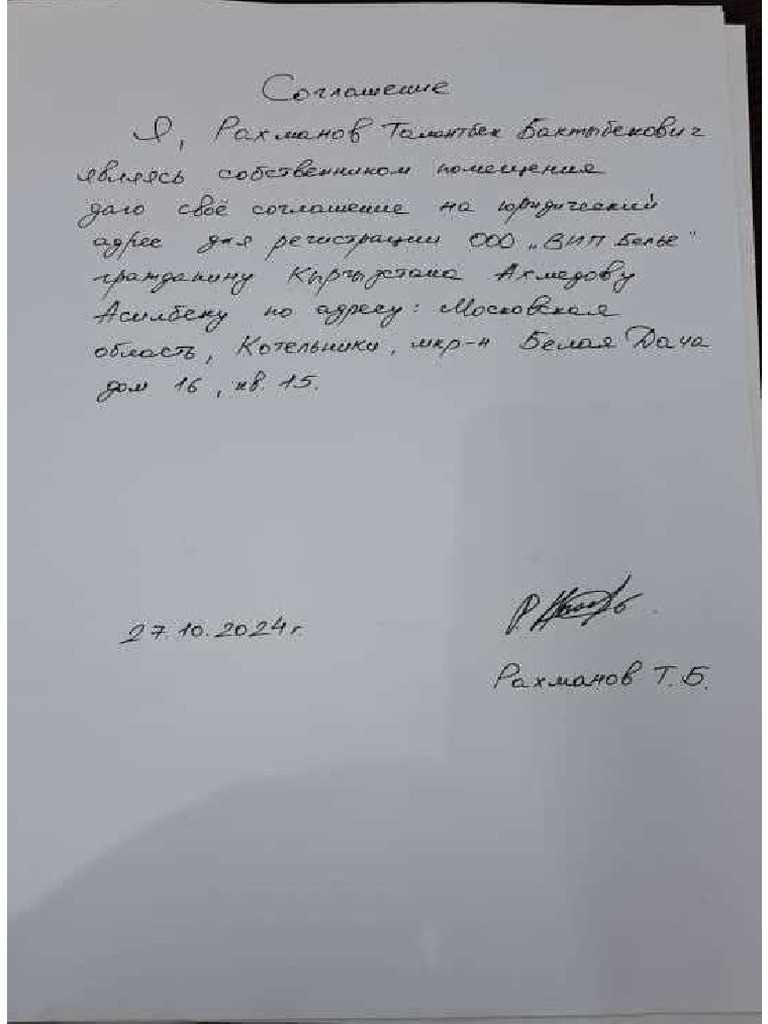 Соглашение
Я, Рахманов Талантбек Бактыбекович
являясь собственником помещения
даю своё соглашение на юридический
адрес для регистрации ООО „ВИП Белье"
гражданину Кыргызстана Ахмедову
Асилбеку по адресу: Московская
область, Котельники, мкр-н Белая Дача
дом 16, кв 15.
27.10.2024 г.
Рахманов Т.Б.